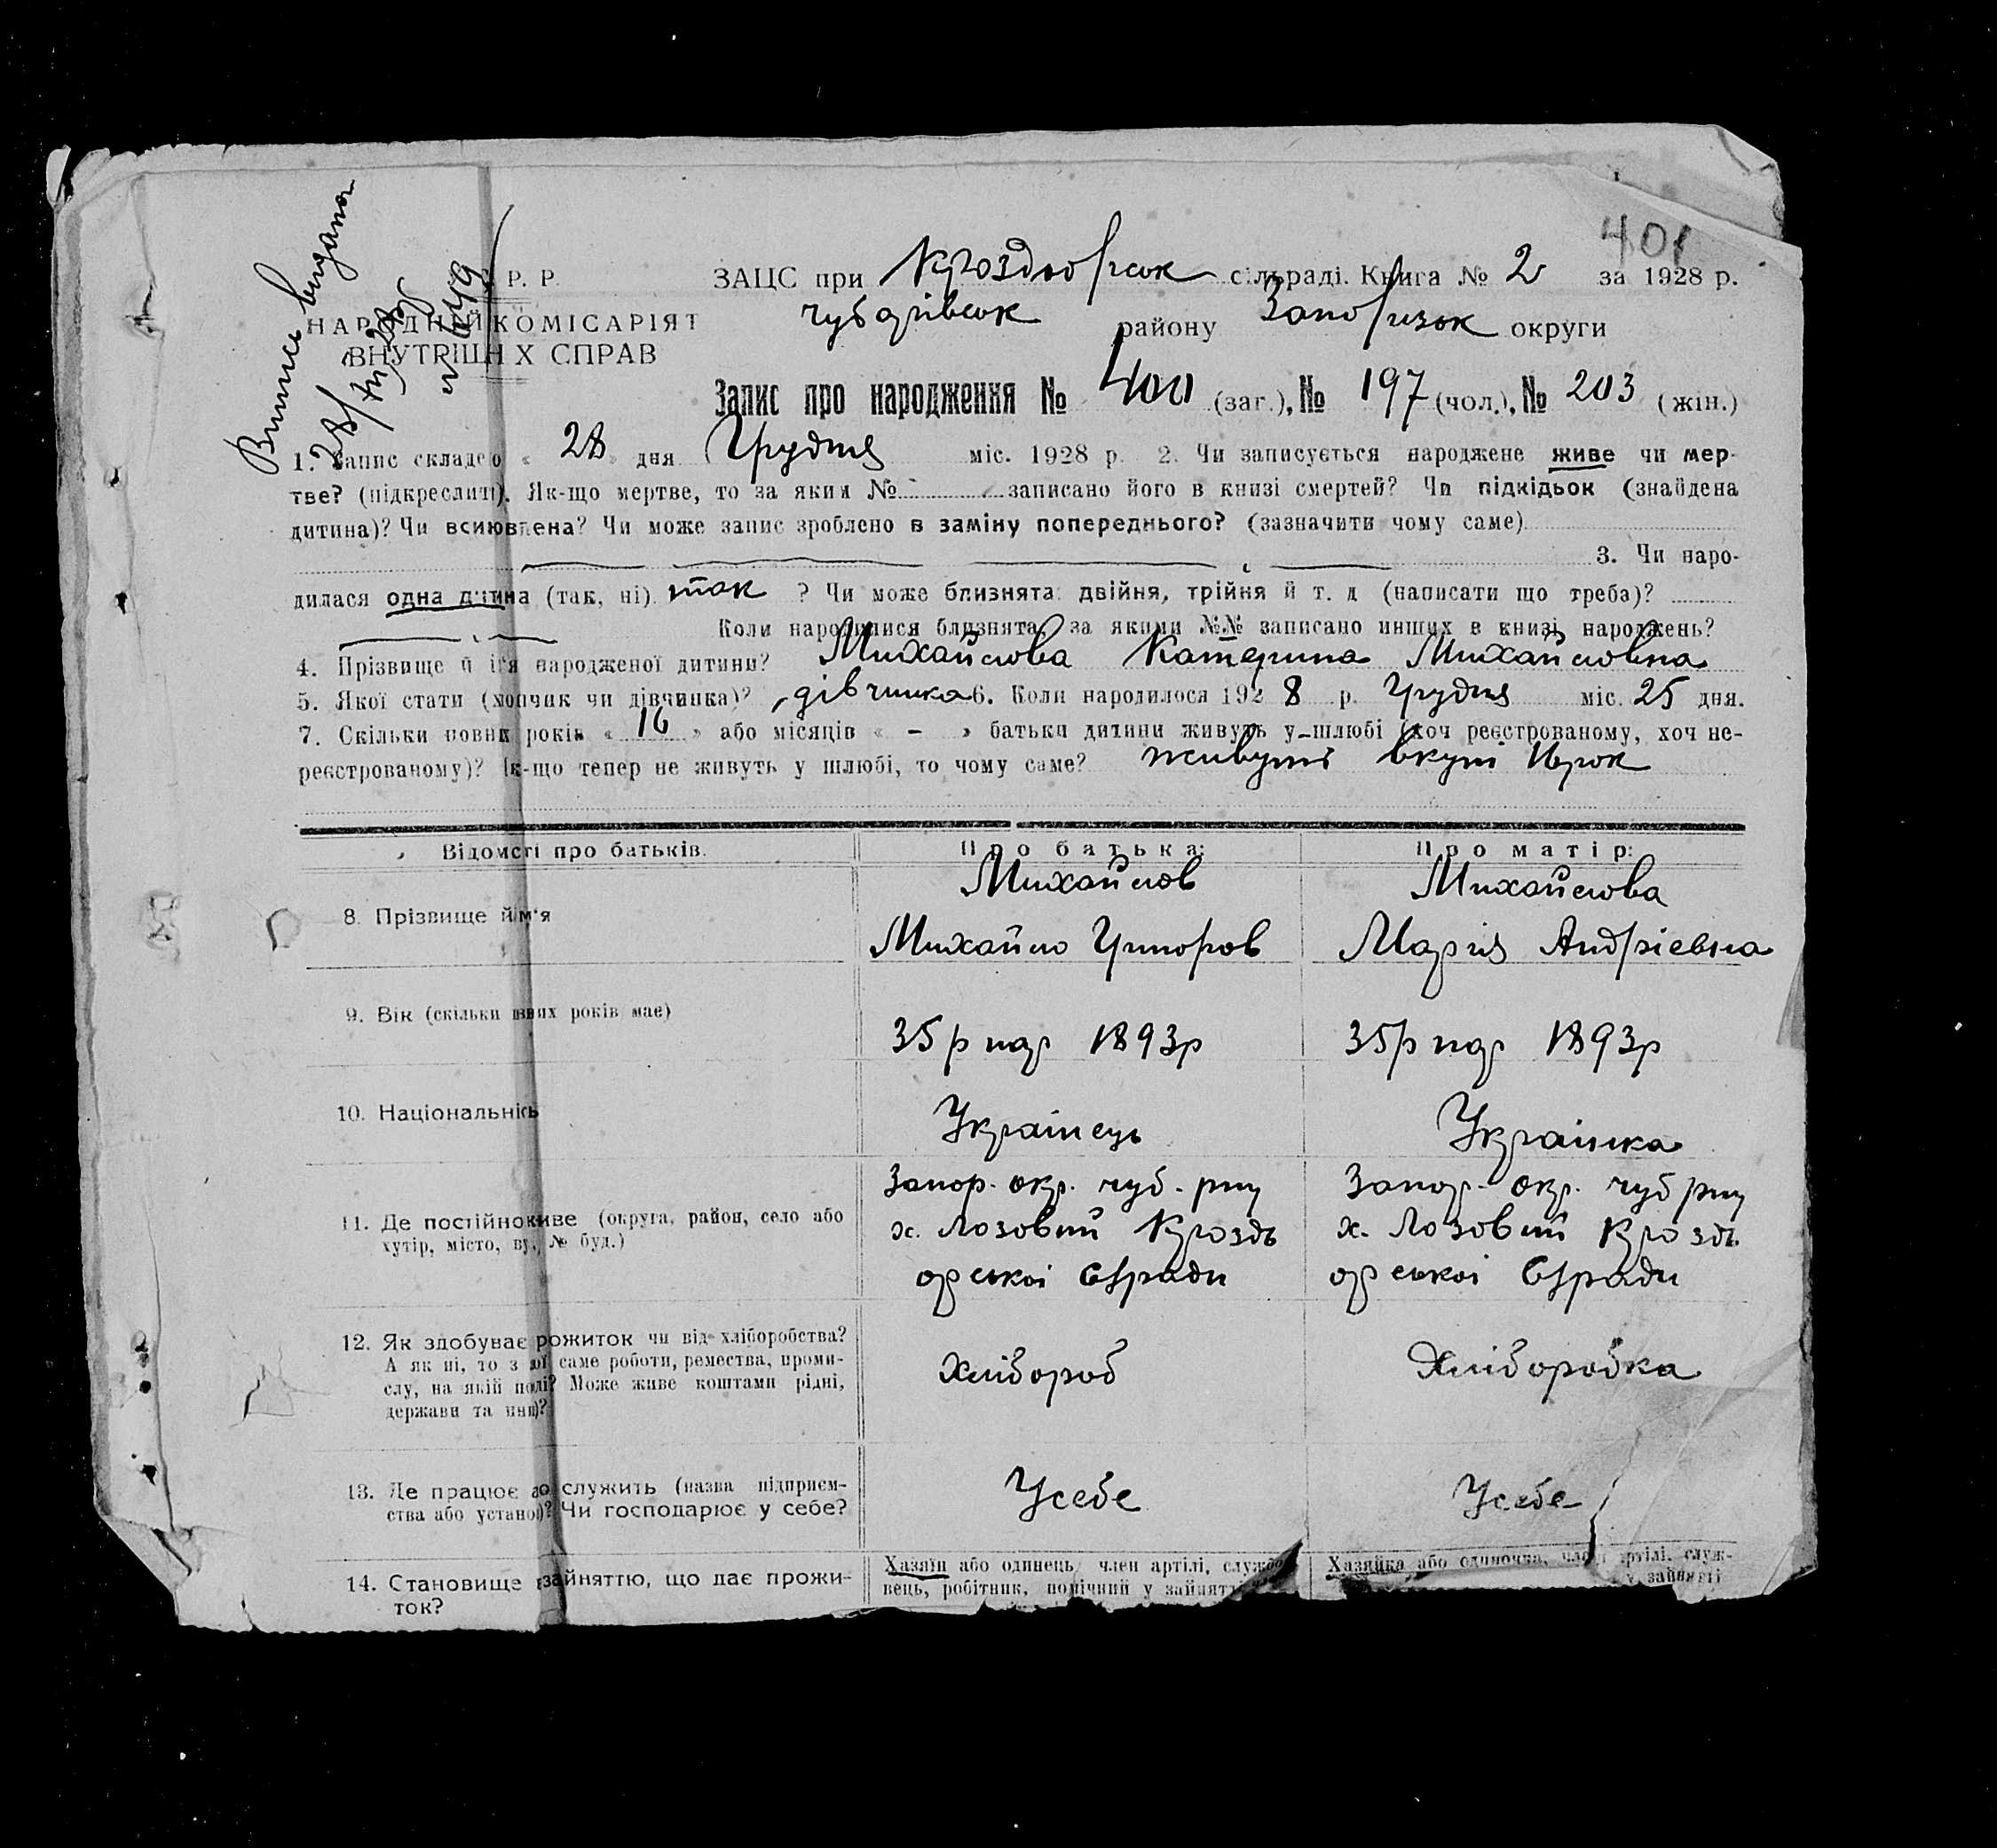 401
Випись видана
28/XII 28р
N 649
Р. Р.
НАРОДНИЙ КОМІСАРІЯТ
ВНУТРІШНІХ СПРАВ
ЗАЦС при сільраді. Книга № 2 за 1928 р.
чубарівськ району Запорізьк округи
Запис про народження № 400 (заг.), № 197 (чол.), № 203 (жін.)
1. Запис складено « 28 » дня Грудня міс. 1928 р. 2. Чи записується народжене живе чи мер-
тве? (підкреслити). Як-що мертве, то за яким № записано його в книзі смертей? Чи підкідьок (знайдена
дитина)? Чи всиновлена? Чи може запис зроблено в заміну попереднього? (зазначити чому саме)
3. Чи наро-
дилася одна дитина (так, ні) так ? Чи може близнята: двійня, трійня й т. д (написати що треба)?
Коли народилися близнята, за якими №№ записано инших в книзі народжень?
4. Прізвище й ім'я народженої дитини? Михайлова Катерина Михайловна
5. Якої стати (хопчик чи дівчинка)? дівчинка 6. Коли народилося 1928 р. Грудня міс. 25 дня.
7. Скільки повних років « 16 » або місяців « - » батьки дитини живуть у шлюбі (хоч реєстрованому, хоч не-
реєстрованому)? Як-що тепер не живуть у шлюбі, то чому саме? живуть вкупі
Відомості про батьків. Про батька: Про матір:
8. Прізвище й ім'я Михайлов Михайлова
Михайло Григоров Марія Андрієвна
9. Вік (скільки повних років має) 35 р нар 1893р 35р нар 1893р
10. Національність Українець Українка
11. Де постійно живе (округа, район, село або
хутір, місто, вул, № буд.)
Запор. окр. чуб. рну
х. Лозовий Кроздь
орської с/ради
Запор. окр. чуб рну
х. Лозовий Кроздь
орської с/ради
12. Як здобуває прожиток чи від хліборобства?
А як ні, то з якої саме роботи, ремества, проми-
слу, на якій посаді? Може живе коштами рідні,
держави та инш)?
Хлібороб Хліборобка
13. Де працює або служить (назва підприєм-
ства або установи)? Чи господарює у себе?
Усебе Усебе
14. Становище в зайняттю, що дає прожи-
ток?
Хазяїн або одинець, член артілі, службо-
вець, робітник, помічний у зайнятті
Хазяйка або одиночка, член артілі, служ-
у зайнятті